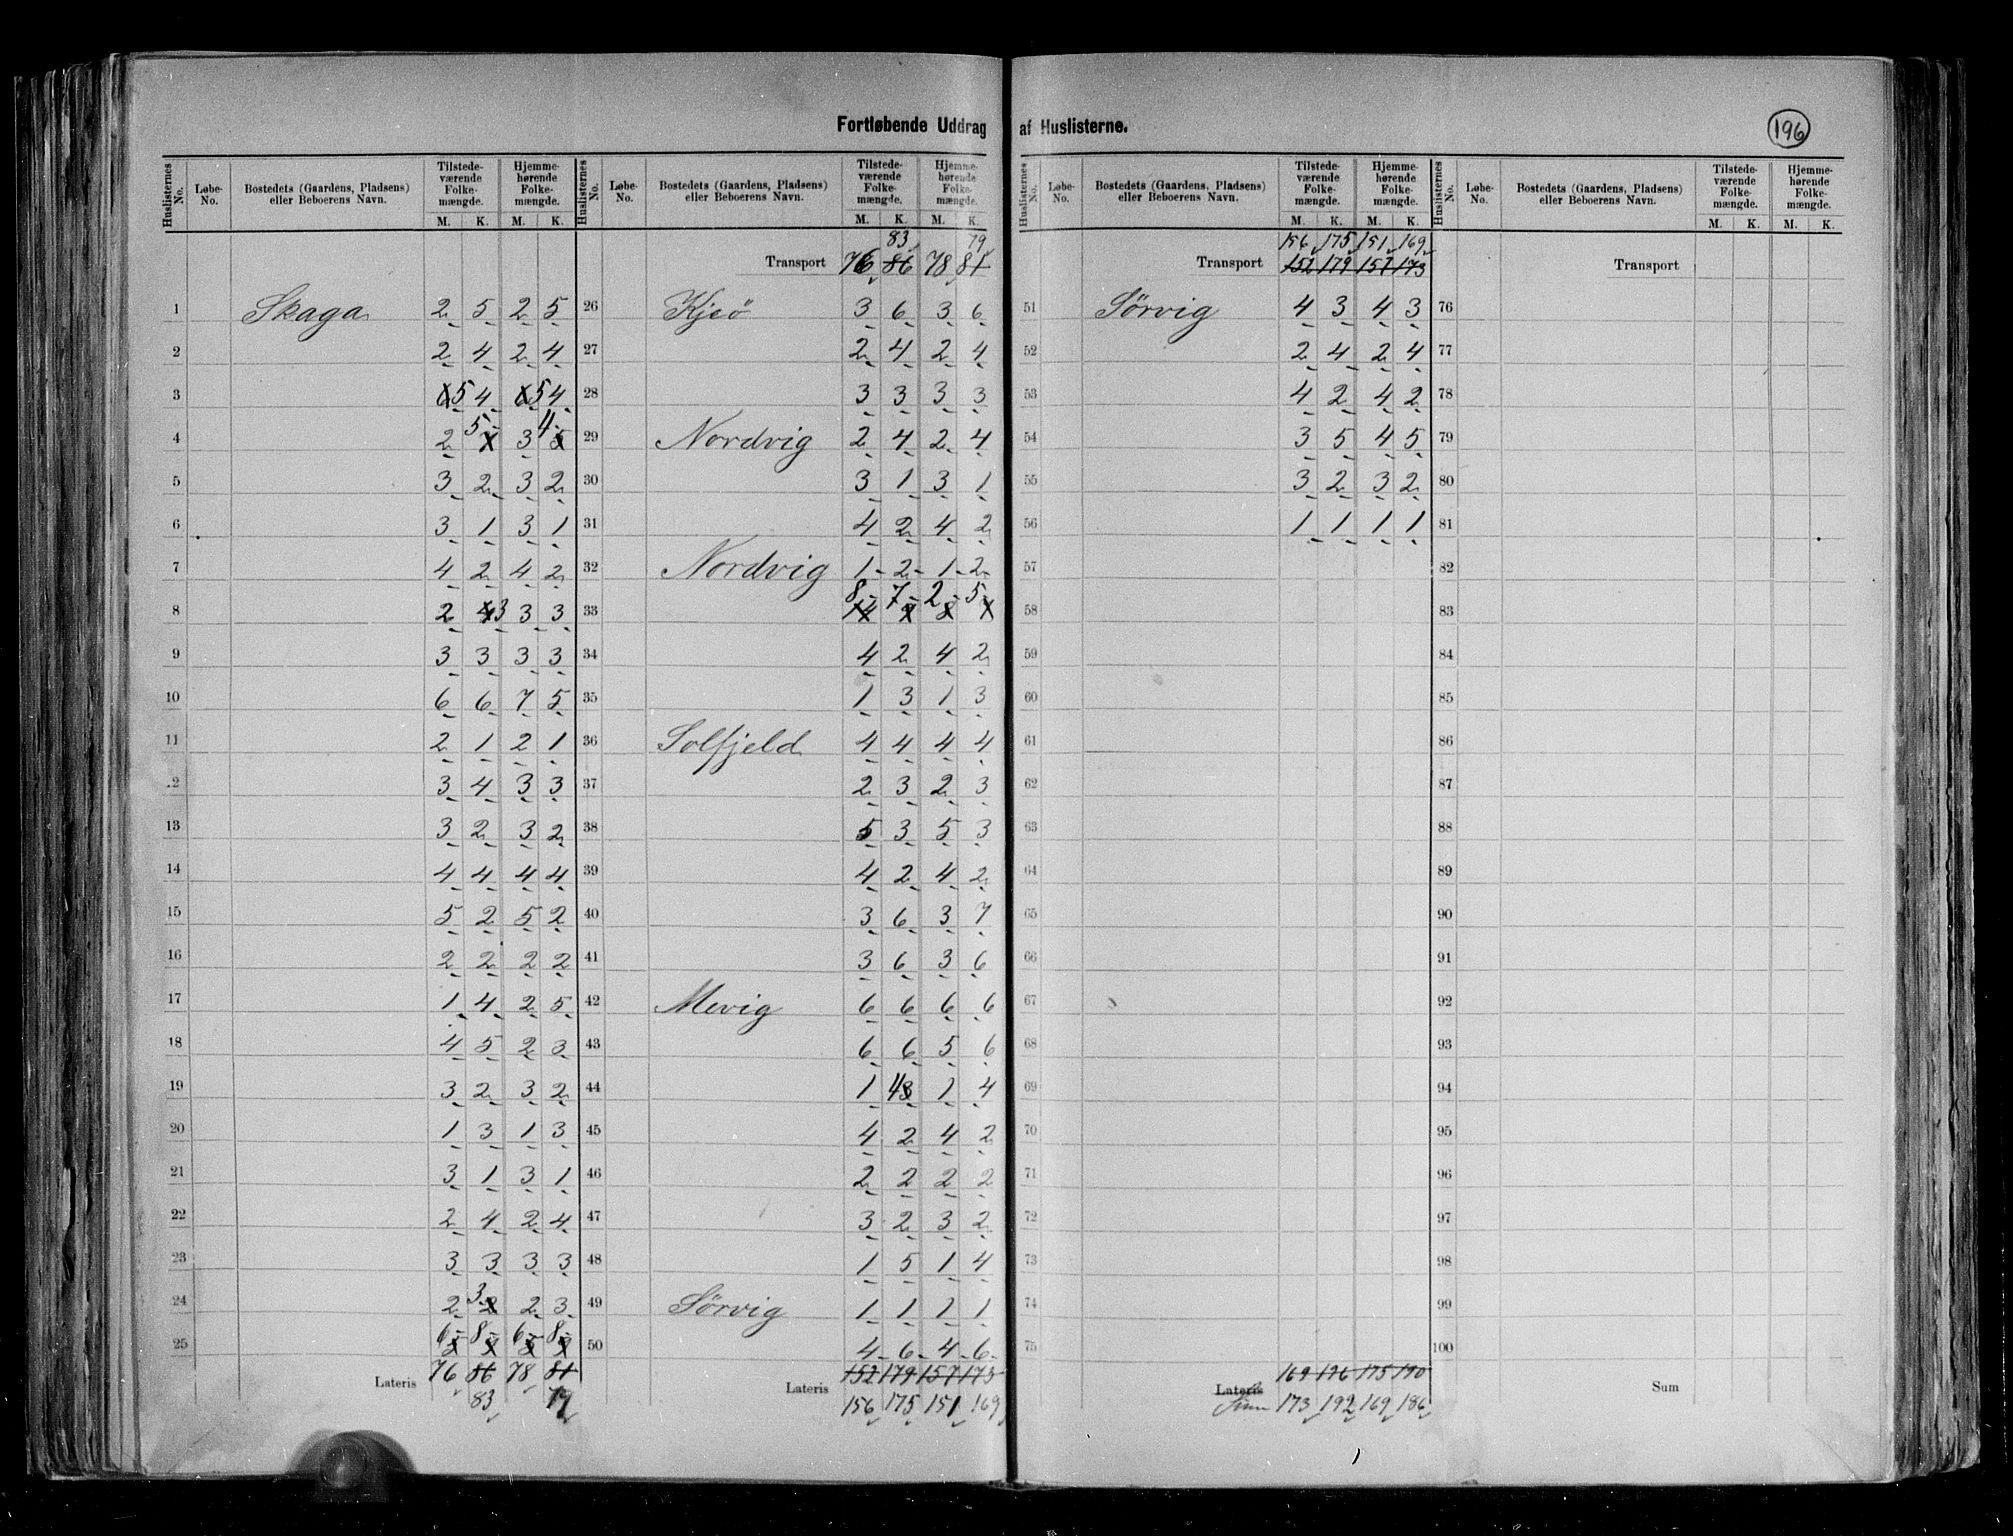 Fortløbende Uddrag af Huslisterne. 196
Huslisternes No. Løbe-No. Bostedets (Gaardens, Pladsens) eller Beboerens Navn. Tilstedeværende Folkemængde. M. K. Hjemmehørende Folkemængde. M. K.
1 Skaga 2 5 2 5
2 2 4 2 4
3 6 5 4 6 5 4
4 2 5 3 4 5
5 3 2 3 2
6 3 1 3 1
7 4 2 4 2
8 2 4 3 3 3
9 3 3 3 3
10 6 6 7 5
11 2 1 2 1
12 3 4 3 3
13 3 2 3 2
14 4 4 4 4
15 5 2 5 2
16 2 2 2 2
17 1 4 2 5
18 4 5 2 3
19 3 2 3 2
20 1 3 1 3
21 3 1 3 1
22 2 4 2 4
23 3 3 3 3
24 2 3 2 2 3
25 6 8 6 8
Lateris 76 86 78 81
83 79
Huslisternes No. Løbe-No. Bostedets (Gaardens, Pladsens) eller Beboerens Navn. Tilstedeværende Folkemængde. M. K. Hjemmehørende Folkemængde. M. K.
83 79
Transport 76 86 78 81
26 Kjeö 3 6 3 6
27 2 4 2 4
28 3 3 3 3
29 Nordvig 2 4 2 4
30 3 1 3 1
31 4 2 4 2
32 Nordvig 1 2 1 2
33 8 7 2 5
34 4 2 4 2
35 1 3 1 3
36 Solfjeld 4 4 4 4
37 2 3 2 3
38 5 3 5 3
39 4 2 4 2
40 3 6 3 7
41 3 6 3 6
42 Mevig 6 6 6 6
43 6 6 5 6
44 1 4 3 1 4
45 4 2 4 2
46 2 2 2 2
47 3 2 3 2
48 1 5 1 4
49 Sörvig 1 1 1 1
50 4 6 4 6
Lateris 152 179 157 173
156 175 151 169
Huslisternes No. Løbe-No. Bostedets (Gaardens, Pladsens) eller Beboerens Navn. Tilstedeværende Folkemængde. M. K. Hjemmehørende Folkemængde. M. K.
156 175 151 169
Transport 152 179 157 173
51 Sörvig 4 3 4 3
52 2 4 2 4
53 4 2 4 2
54 3 5 4 5
55 3 2 3 2
56 1 1 1 1
57
58
59
60
61
62
63
64
65
66
67
68
69
70
71
72
73
74
75
Lateris 169 196 175 190
Sum 173 192 169 186
Huslisternes No. Løbe-No. Bostedets (Gaardens, Pladsens) eller Beboerens Navn. Tilstedeværende Folkemængde. M. K. Hjemmehørende Folkemængde. M. K.
Transport
76
77
78
79
80
81
82
83
84
85
86
87
88
89
90
91
92
93
94
95
96
97
98
99
100
Sum